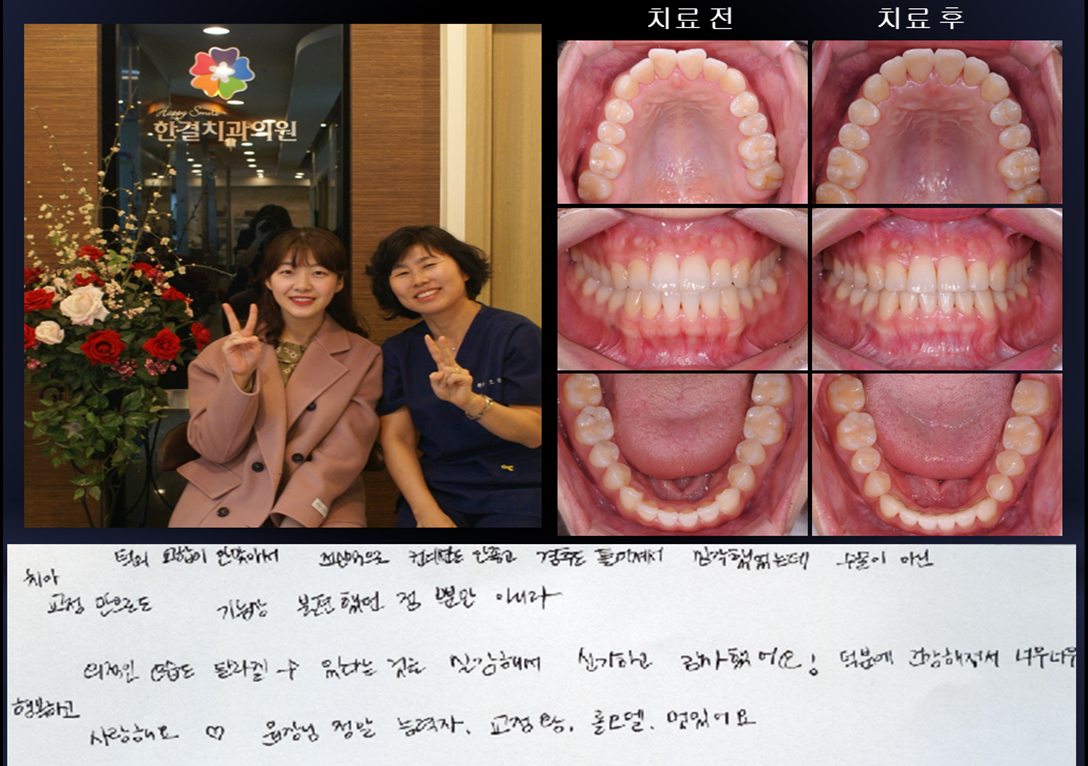 치료 전
치료 후
Happy Smile
한결치과의원
턱의 교합이 안맞아서 전신적으로 컨디션도 안좋고 경추도 틀어져서 심각했었는데 수술이 아닌
치아
교정 만으로도 기능상 불편했던 점 뿐만 아니라
외적인 모습도 달라질 수 있다는 것을 실감해서 신기하고 감사했어요! 덕분에 건강해져서 너무너무
행복하고
사랑해요 ♡ 원장님 정말 능력자, 교정 짱, 롤모델, 멋있어요